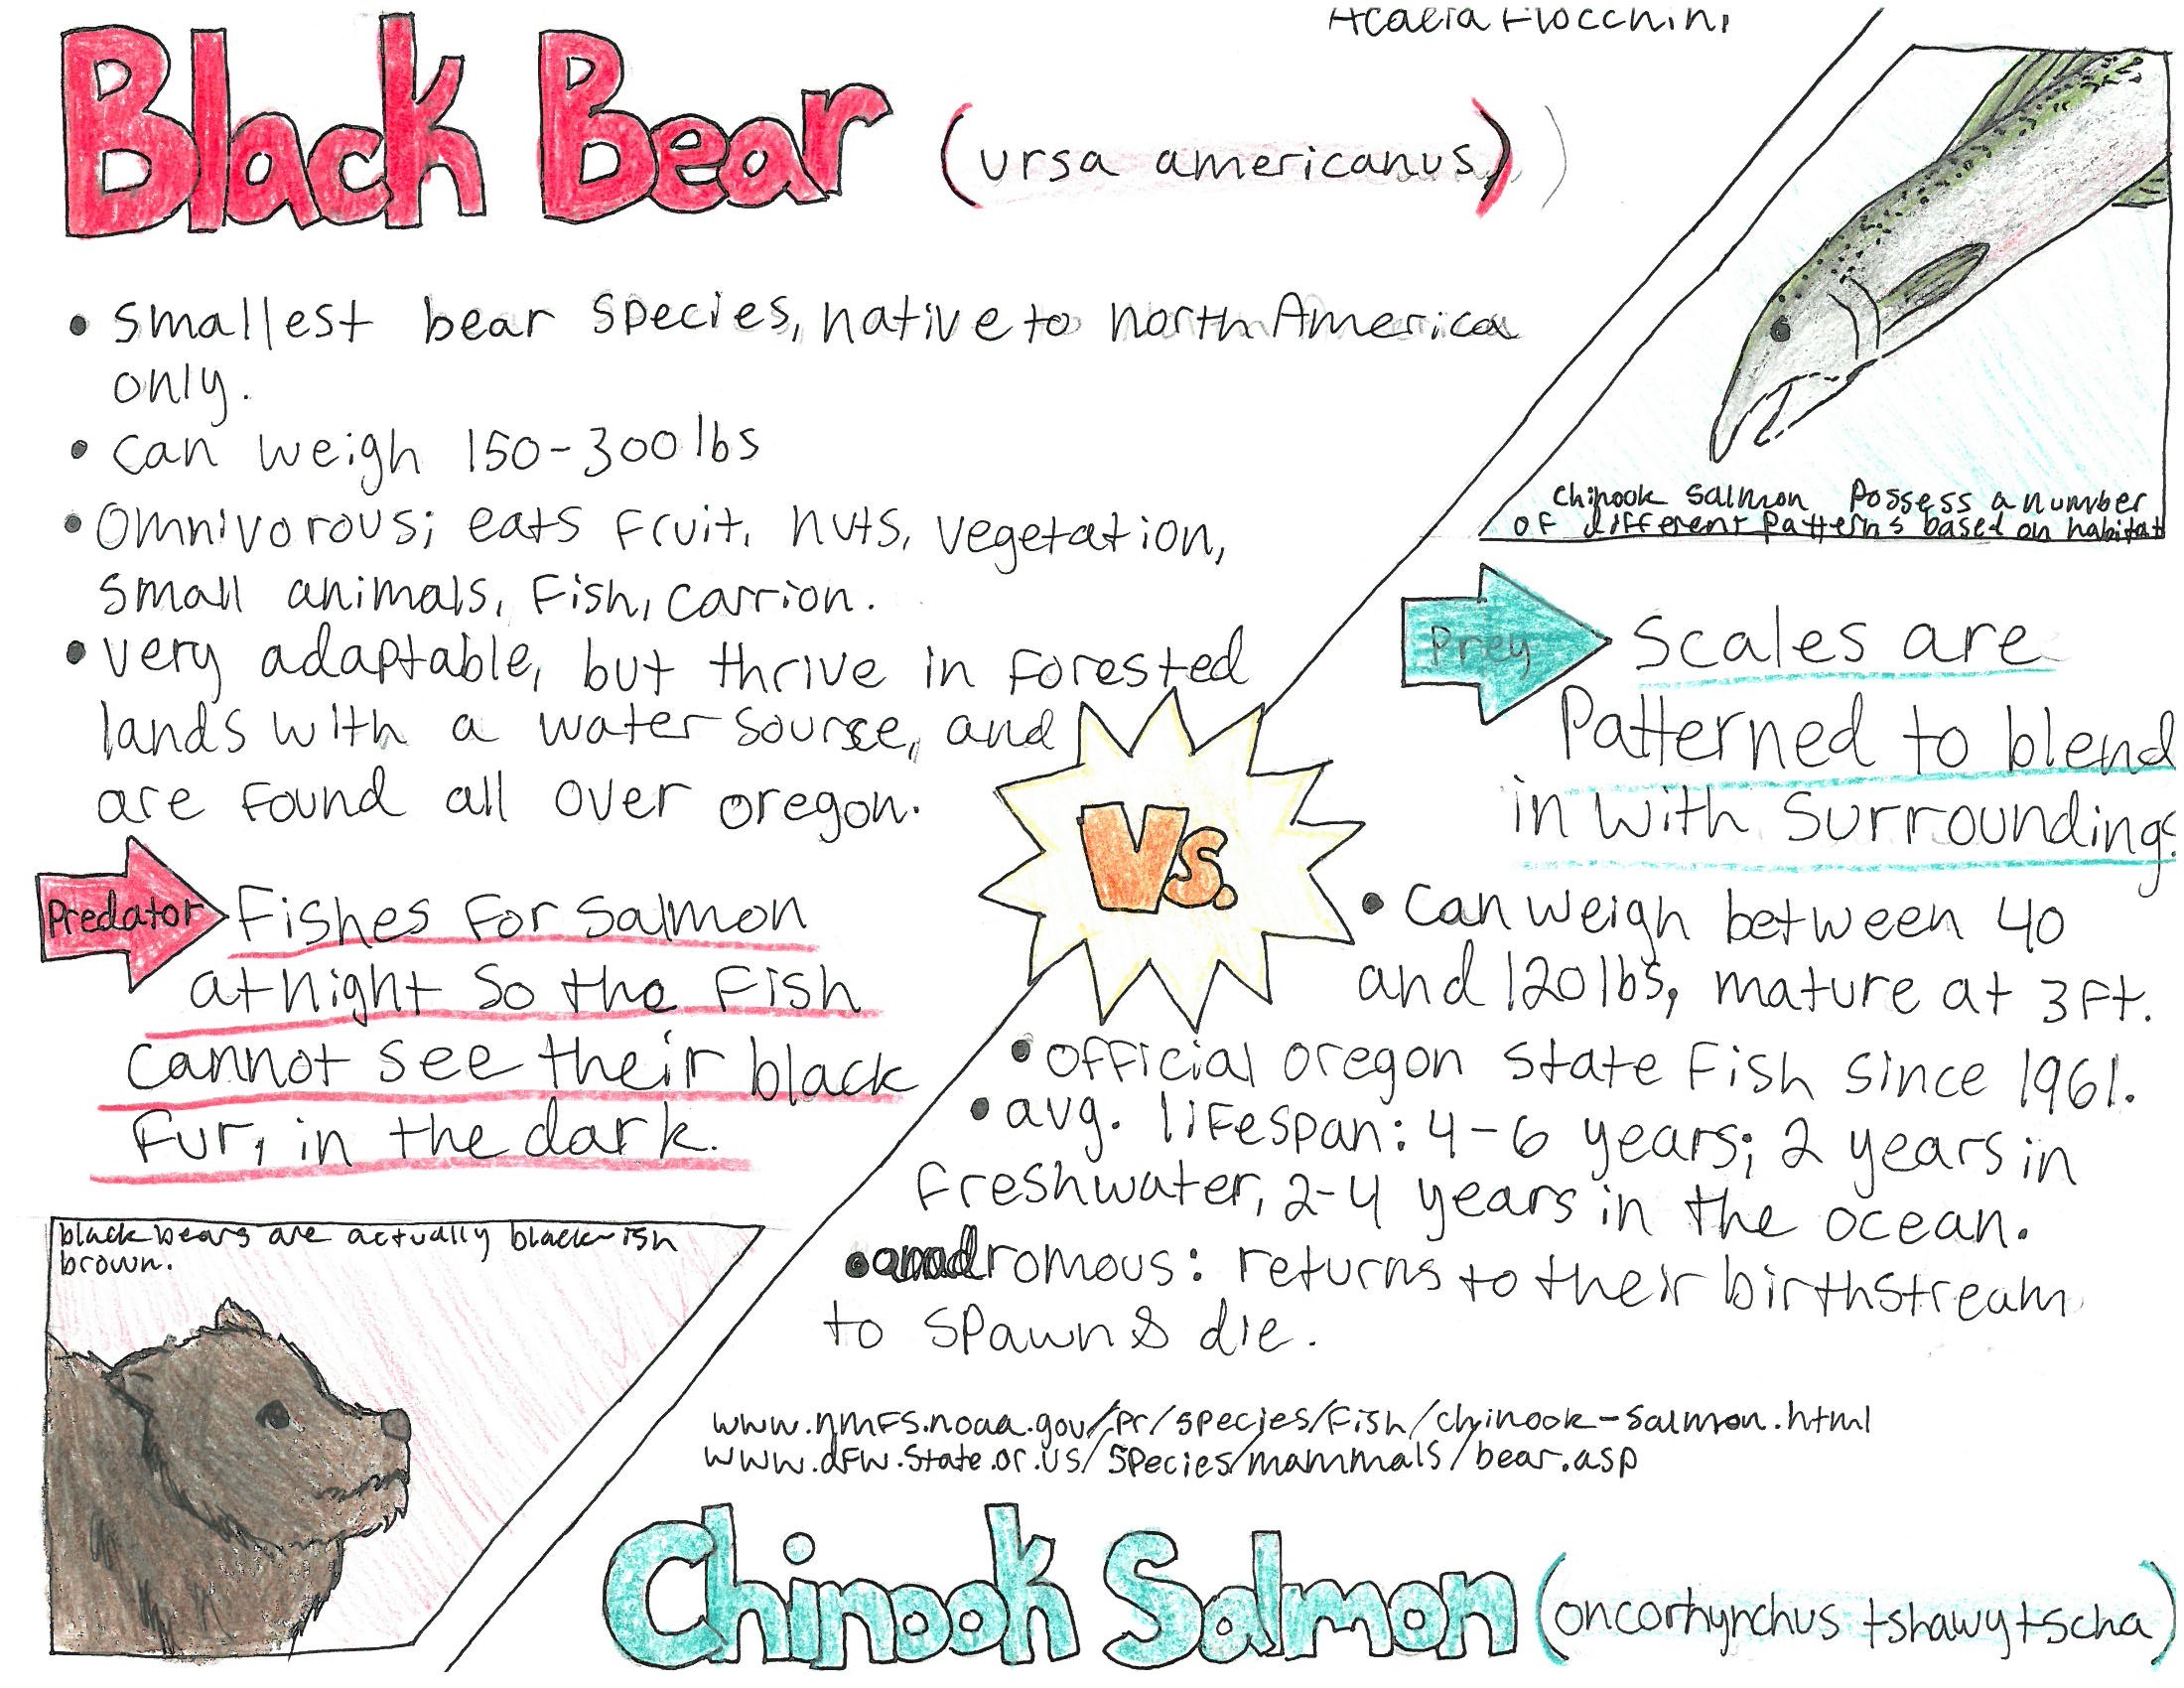 Acacia Fiocchini
Black Bear (ursa americanus)
• smallest bear species, native to north America
only.
• can weigh 150-300 lbs
• Omnivorous; eats fruit, nuts, vegetation,
small animals, fish, carrion.
• very adaptable, but thrive in forested
lands with a water source, and
are found all over oregon.
Predator
Fishes for salmon
at night so the fish
cannot see their black
fur, in the dark.
black bears are actually black-ish
brown.
Vs.
chinook salmon possess a number
of different patterns based on habitat
Prey
Scales are
Patterned to blend
in with surroundings
• Can weigh between 40
and 120 lbs, mature at 3ft.
• official oregon state fish since 1961.
• avg. lifespan: 4-6 years; 2 years in
freshwater, 2-4 years in the ocean.
• anadromous: returns to their birthstream
to spawn & die.
www.nmfs.noaa.gov/pr/species/fish/chinook-salmon.html
www.dfw.state.or.us/species/mammals/bear.asp
Chinook Salmon (oncorhynchus tshawytscha)